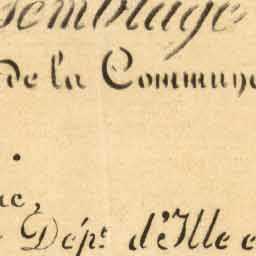 semblage
de la Commune
ne,
Dépt. d'Ille e